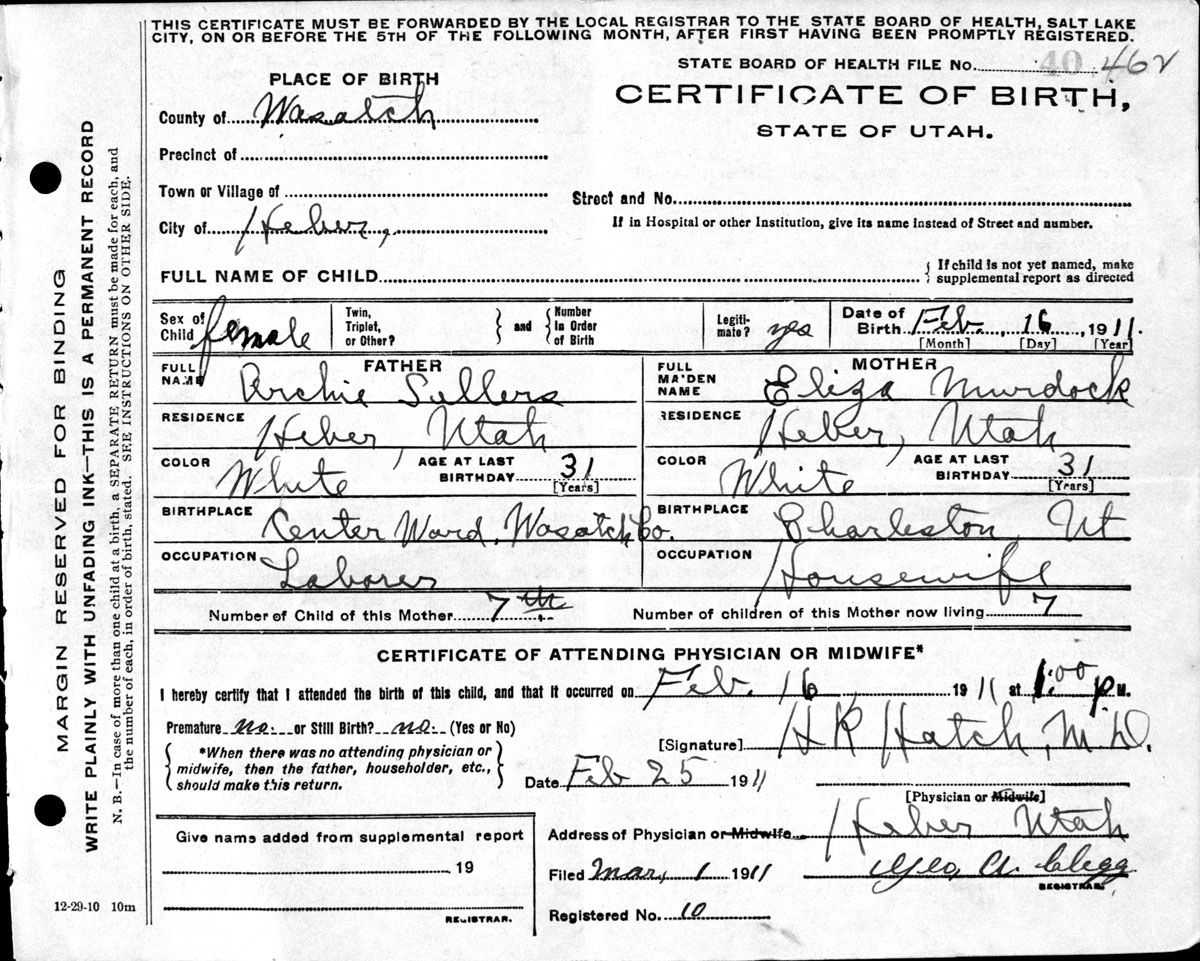 THIS CERTIFICATE MUST BE FORWARDED BY THE LOCAL REGISTRAR TO THE STATE BOARD OF HEALTH, SALT LAKE
CITY, ON OR BEFORE THE 5TH OF THE FOLLOWING MONTH, AFTER FIRST HAVING BEEN PROMPTLY REGISTERED.
STATE BOARD OF HEALTH FILE No. 40 462
PLACE OF BIRTH
CERTIFICATE OF BIRTH,
STATE OF UTAH.
County of Wasatch
Precinct of
Town or Village of
Street and No.
City of Heber,
If in Hospital or other Institution, give its name instead of Street and number.
FULL NAME OF CHILD
{ If child is not yet named, make
supplemental report as directed
Sex of
Child female
Twin,
Triplet,
or Other?
} and {
Number
In Order
of Birth
Legiti-
mate? yes
Date of
Birth Feb, 16, 1911.
[Month] [Day] [Year]
FATHER
FULL
NAME Archie Sellers
MOTHER
FULL
MAIDEN
NAME Eliza Murdock
RESIDENCE Heber, Utah
RESIDENCE Heber, Utah
COLOR White
AGE AT LAST
BIRTHDAY 31
[Years]
COLOR White
AGE AT LAST
BIRTHDAY 31
[Years]
BIRTHPLACE Center Ward, Wasatch Co.
BIRTHPLACE Charleston, Ut
OCCUPATION Laborer
OCCUPATION Housewife
Number of Child of this Mother 7th
Number of children of this Mother now living 7
CERTIFICATE OF ATTENDING PHYSICIAN OR MIDWIFE*
I hereby certify that I attended the birth of this child, and that it occurred on Feb. 16, 1911 at 1:00 P.M.
Premature no. or Still Birth? no. (Yes or No)
{ *When there was no attending physician or
midwife, then the father, householder, etc.,
should make this return. }
[Signature] H R Hatch, M.D.
Date Feb 25 1911
[Physician or Midwife]
Give name added from supplemental report
19
REGISTRAR.
Address of Physician or Midwife Heber Utah
Filed Mar, 1 1911 Geo. A. Clegg
REGISTRAR.
Registered No. 10
12-29-10 10m
MARGIN RESERVED FOR BINDING
WRITE PLAINLY WITH UNFADING INK—THIS IS A PERMANENT RECORD
N. B.—In case of more than one child at a birth, a SEPARATE RETURN must be made for each, and
the number of each, in order of birth, stated. SEE INSTRUCTIONS ON OTHER SIDE.